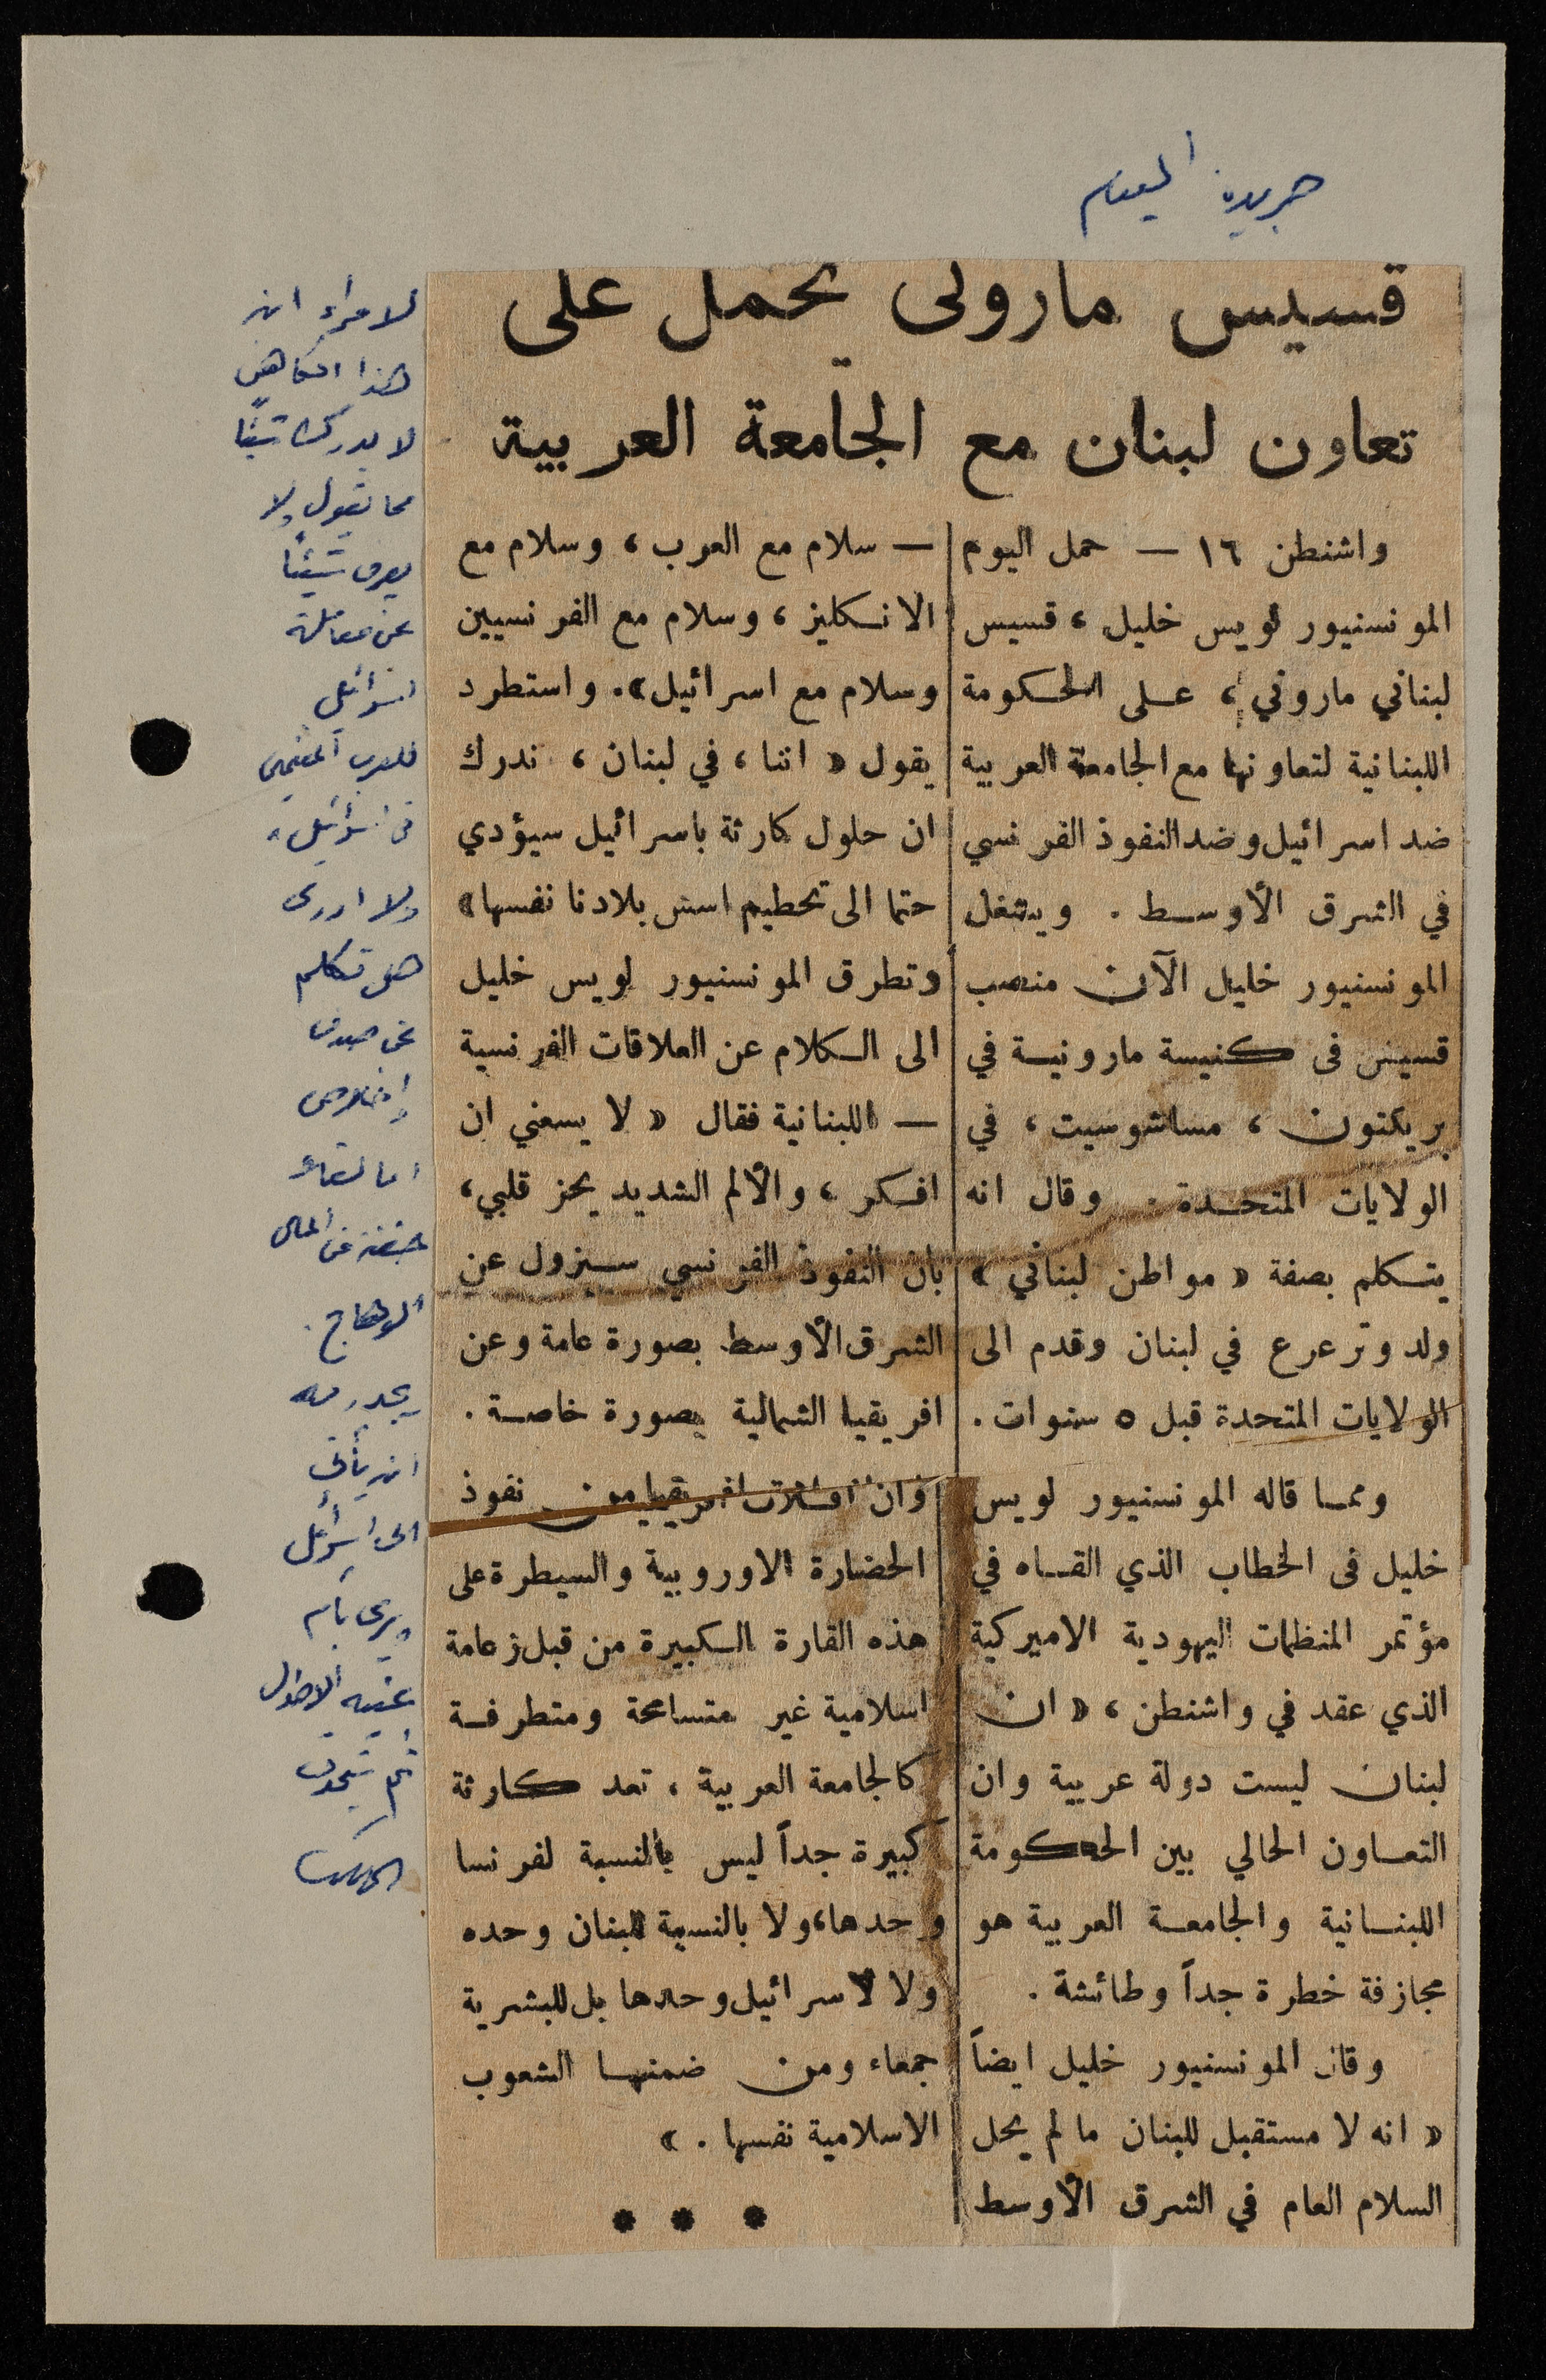 جريدة اليوم
قسيس ماروني يحمل على
تعاون لبنان مع الجامعة العربية
واشنطن ١٦ — حمل اليوم
المونسنيور لويس خليل، قسيس
لبناني ماروني، على الحكومة
اللبنانية لتعاونها مع الجامعة العربية
ضد اسرائيل وضد النفوذ الفرنسي
في الشرق الأوسط . ويشغل
المونسنيور خليل الآن منصب
قسيس فى كنيسة مارونية في
بريكتون ، مساشوسيت ، في
الولايات المتحدة . وقال انه
يتكلم بصفة « مواطن لبناني »
ولد وترعرع في لبنان وقدم الى
الولايات المتحدة قبل ٥ سنوات .
ومما قاله المونسنيور لويس
خليل فى الخطاب الذي القاه في
مؤتمر المنظمات اليهودية الاميركية
الذي عقد في واشنطن ، « ان
لبنان ليست دولة عربية وان
التعاون الحالي بين الحكومة
اللبنانية والجامعة العربية هو
مجازفة خطرة جداً وطائشة .
وقال المونسنيور خليل ايضاً
« انه لا مستقبل للبنان ما لم يحل
السلام العام في الشرق الأوسط
— سلام مع العرب ، وسلام مع
الانكليز ، وسلام مع الفرنسيين
وسلام مع اسرائيل» . واستطرد
يقول « اننا ، في لبنان ، ندرك
ان حلول كارثة باسرائيل سيؤدي
حتما الى تحطيم اسس بلادنا نفسها»
وتطرق المونسنيور لويس خليل
الى الكلام عن العلاقات الفرنسية
— اللبنانية فقال « لا يسعني ان
افكر ، والألم الشديد يحز قلبي ،
بان النفوذ الفرنسي سيزول عن
الشرق الأوسط بصورة عامة وعن
افريقيا الشمالية بصورة خاصة .
وان افلات افريقيا من نفوذ
الحضارة الاوروبية والسيطرة على
هذه القارة الكبيرة من قبل زعامة
اسلامية غير متسامحة ومتطرفة
كالجامعة العربية ، تعد كارثة
كبيرة جداً ليس بالنسبة لفرنسا
وحدها، ولا بالنسبة للبنان وحده
ولا لاسرائيل وحدها بل للبشرية
جمعاء ومن ضمنها الشعوب
الاسلامية نفسها . »
* * *
لا مراء ان
هذا الكاهن
لا يدرك شيئًا
مما يقول ولا
يعرف شيئًا
عن معاملة
اسرائيل
للعرب المقيمين
في اسرائيل
ولا ادري
هل تكلم
عن صدق
وإخلاص
اما
يجدر به
ان يأتي
الى اسرائيل
ويرى بأم
عينيه الاحوال
ثم